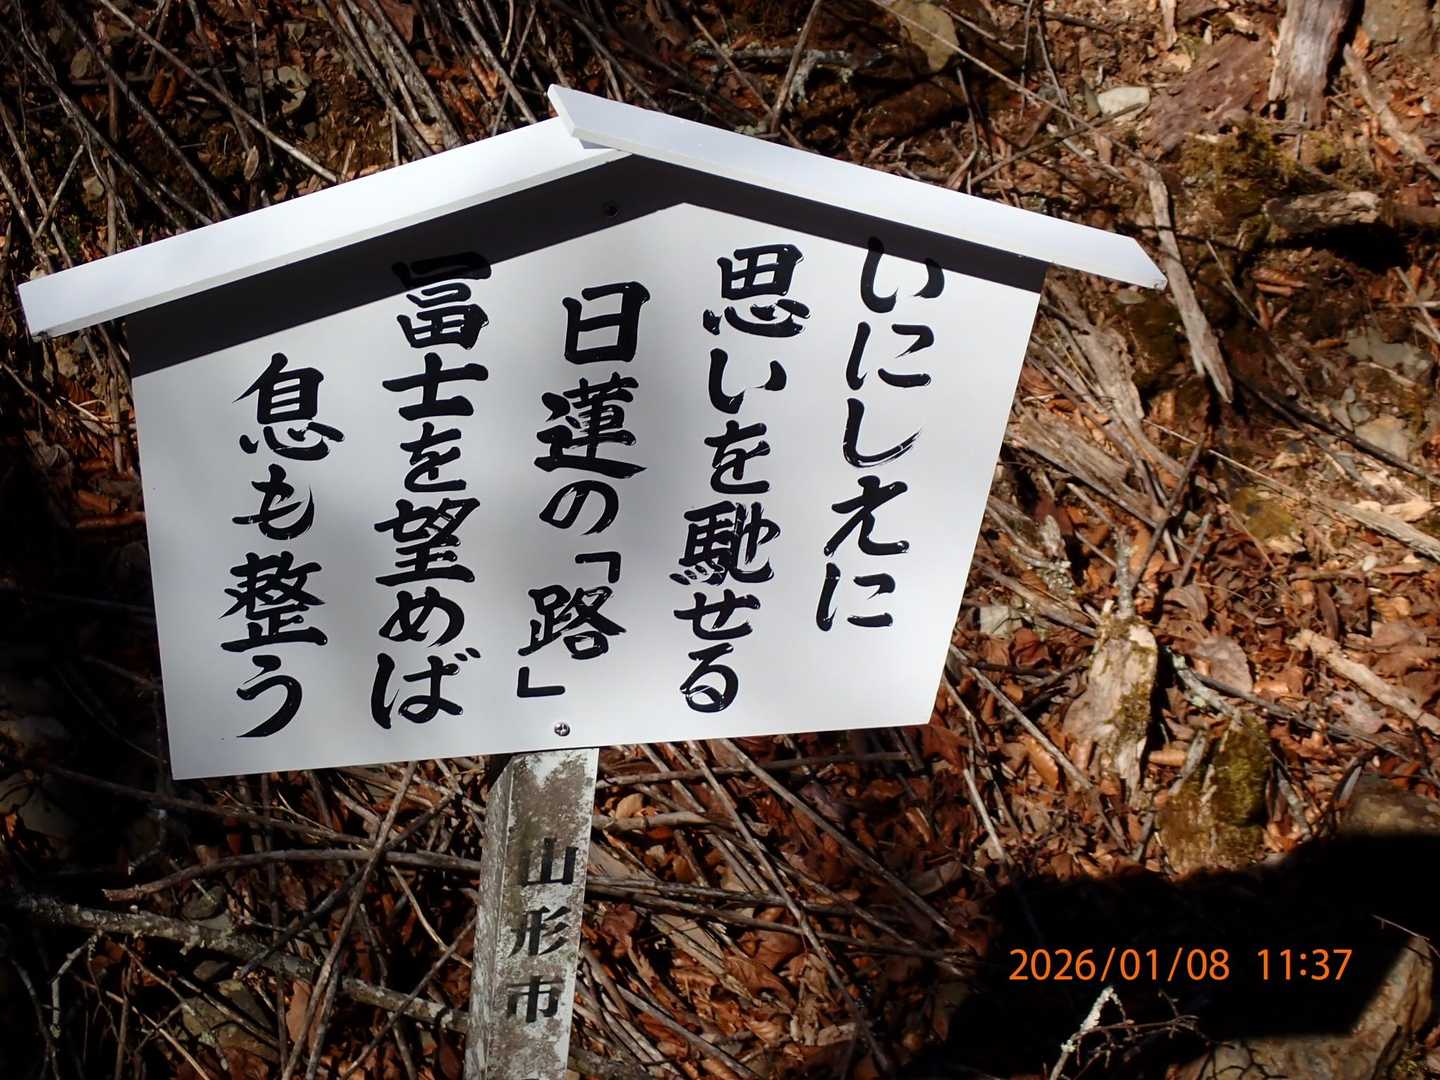 いにしえに
思いを馳せる
日蓮の「路」
富士を望めば
息も整う
山形市
2026/01/08 11:37